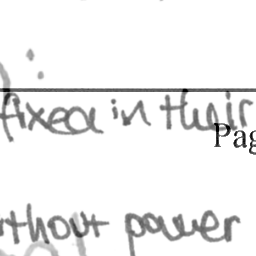 fixed in their
Pag
thout power